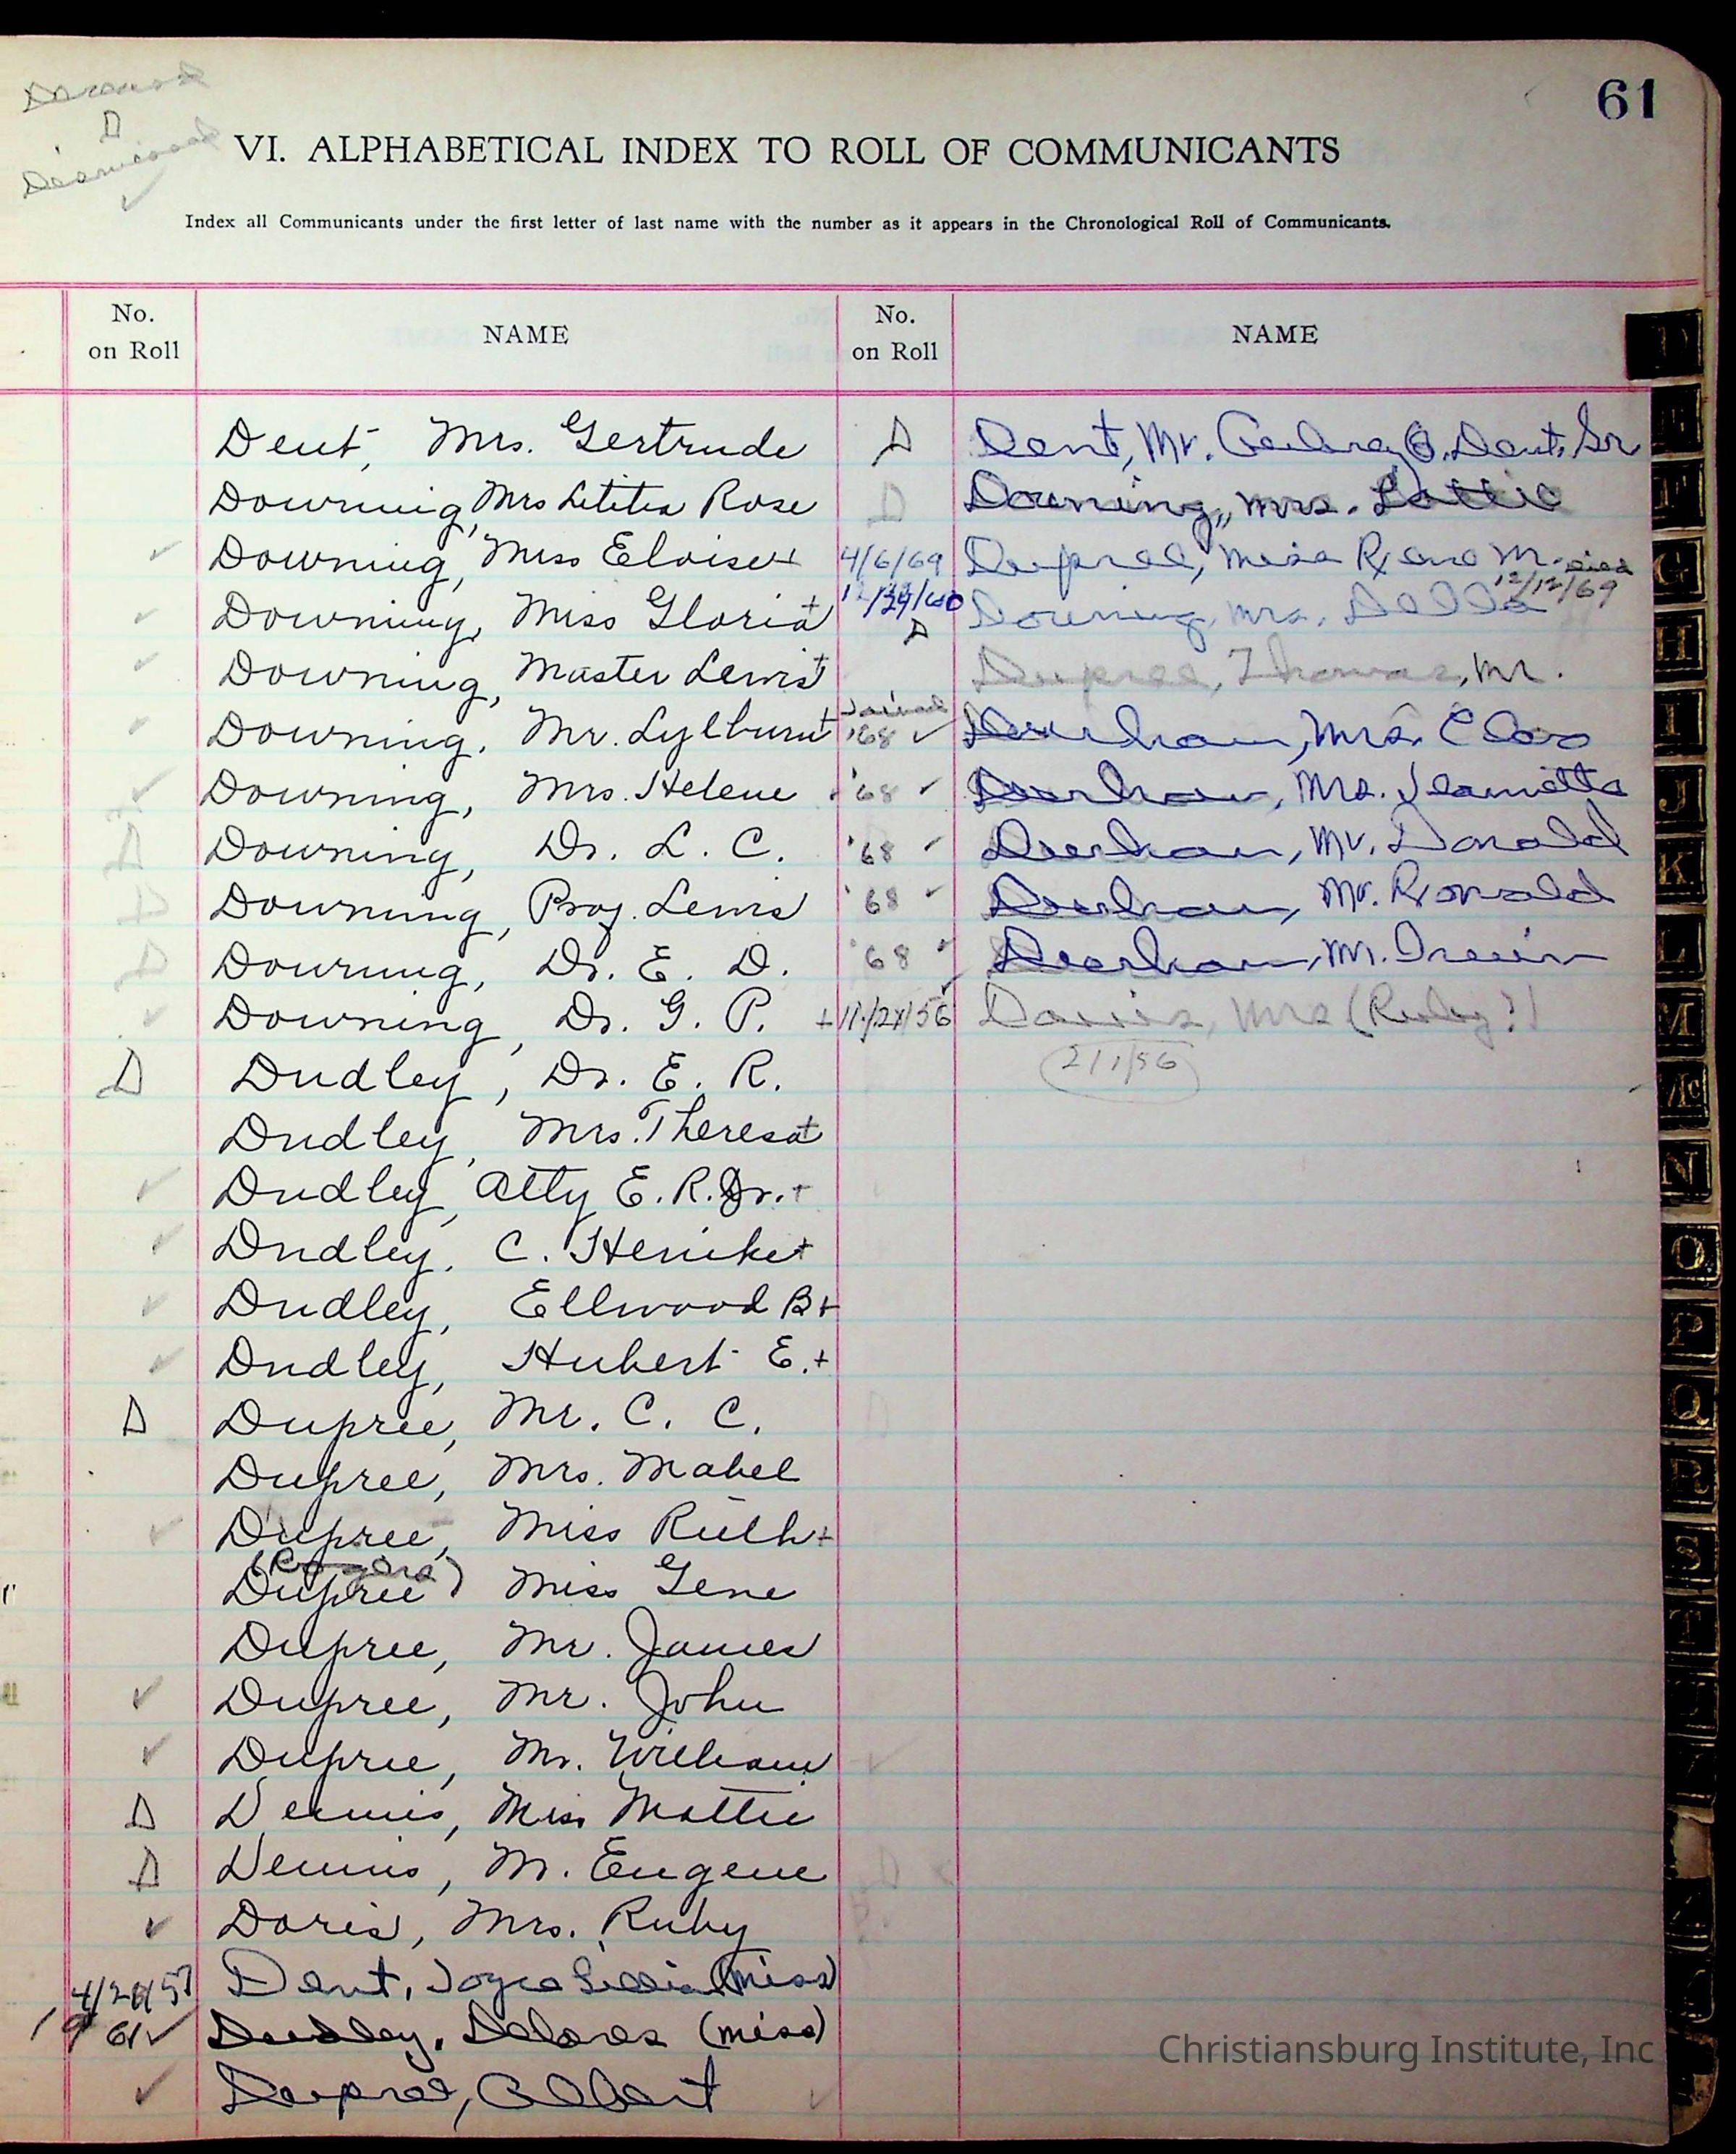 61
Deceased
D
Deceased
VI. ALPHABETICAL INDEX TO ROLL OF COMMUNICANTS
Index all Communicants under the first letter of last name with the number as it appears in the Chronological Roll of Communicants.
No. on Roll NAME No. on Roll NAME
Dent, Mrs. Gertrude D Dent, Mr. O. Dent, Sr
Downing, Mrs Letitia Rose D Downing, Mrs. Lottie
✓ Downing, Miss Eloise + 4/6/69 Dupree, Miss Rene M. died 12/12/69
✓ Downing, Miss Gloria + D Downing, Mrs. Della
✓ Downing, Master Lewis + Dupree, Thomas, Mr.
✓ Downing, Mr. Lylburn + Joined '68 ✓ Mrs. Cleo
✓ Downing, Mrs. Helene '68 ✓ Mrs. Jeanette
D Downing, Dr. L. C. '68 ✓ Mr. Donald
D Downing, Prof. Lewis '68 ✓ Mr. Ronald
D Downing, Dr. E. D. '68 ✓ Mr. Irwin
✓ Downing, Dr. G. P. + 11/24/56 Davis, Mrs (Ruby?)
D Dudley, Dr. E. R. 2/1/56
Dudley, Mrs. Theresa +
✓ Dudley, Atty E. R. Jr. +
✓ Dudley, C. Henike +
✓ Dudley, Ellwood B +
✓ Dudley, Hubert E. +
D Dupree, Mr. C. C.
Dupree, Mrs. Mabel
✓ Dupree, Miss Ruth +
Dupree Miss Gene
Dupree, Mr. James
✓ Dupree, Mr. John
✓ Dupree, Mr. William
D Dennis, Miss Mattie
D Dennis, Mr. Eugene
✓ Doris, Mrs. Ruby
Dent, Joyce (Miss)
61 ✓ Dudley, Delores (Miss)
✓ Dupree, Albert
Christiansburg Institute, Inc
D
E
F
G
H
I
J
K
L
M
Mc
N
O
P
Q
R
S
T